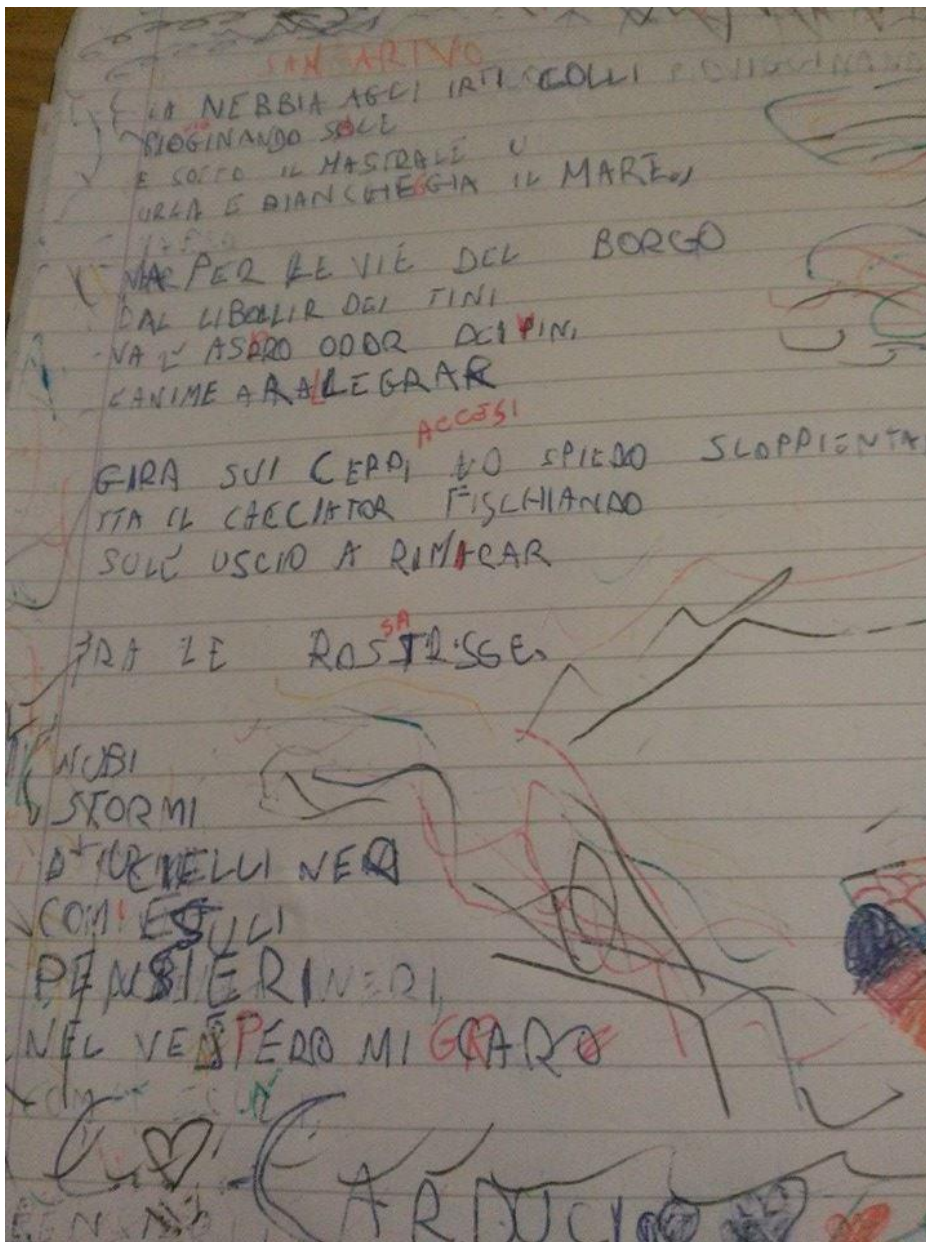 SAN ARTVO
LA NEBBIA AGLI IRTI COLLI
PIOGINANDO SALE
E SOTTO IL MASTRALE U
URLA E BIANCHEGGIA IL MARE
MAR PER LE VIE DEL BORGO
DAL LIBOLLIR DEI TINI
VA L'ASPRO ODOR DEI VINI
L'ANIME A RALLEGRAR
ACCESI
GIRA SUI CEPPI LO SPIEDO SCOPPIENTA
STA IL CACCIATOR FISCHIANDO
SULL'USCIO A RIMIRAR
SA
TRA LE ROSTRSSE.
NUBI
STORMI
D'UCCELLI NERI
COM'ESULI
PENSIERI NERI,
NEL VESPERO MIGRARO
CARDUCI